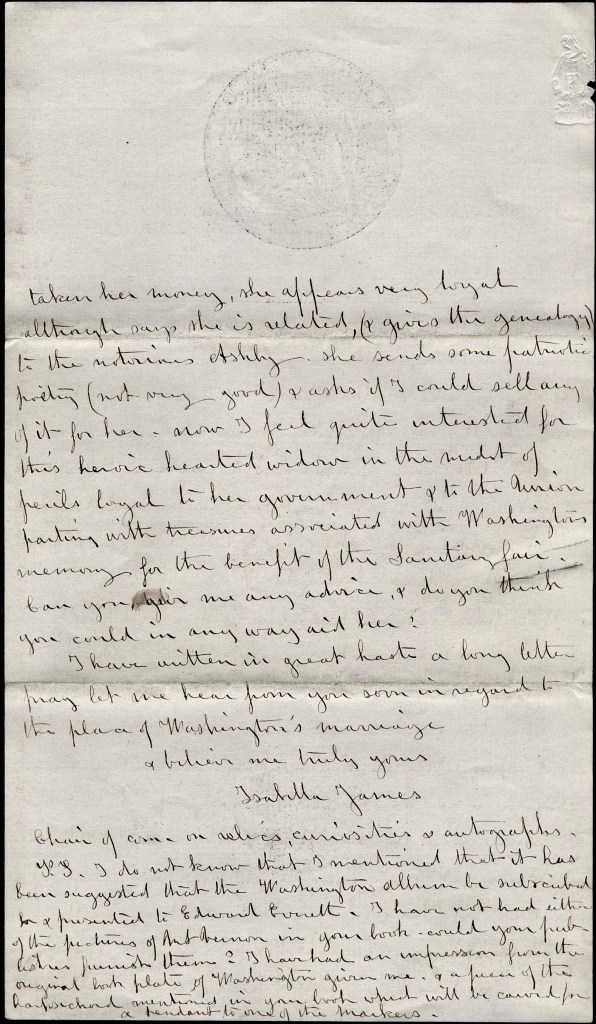 taken her money, she appears very loyal
although says she is related, (& gives the genealogy)
to the notorious Ashby. she sends some patriotic
poetry (not very good) & asks if I could sell any
of it for her - now I feel quite interested for
this heroic hearted widow in the midst of
perils loyal to her government & to the Union
parting with treasures associated with Washingtons
memory for the benefit of the Sanitary fair -
Can you give me any advice, & do you think
you could in any way aid her?
I have written in great haste a long letter
pray let me hear from you soon in regard to
the place of Washington's marriage
& believe me truly yours
Isabella James
Chair of com - on relics, curiosities & autographs.
P.S. I do not know that I mentioned that it has
been suggested that the Washington album be subscribed
for & presented to Edward Everett. I have not had either
of the pictures of Mt Vernon in your book - could your pub-
lishers furnish them? I have had an impression from the
original book plate of Washington given me - & a piece of the
harpsichord mentioned in your book which will be carved for
a pendant to one of the markers.